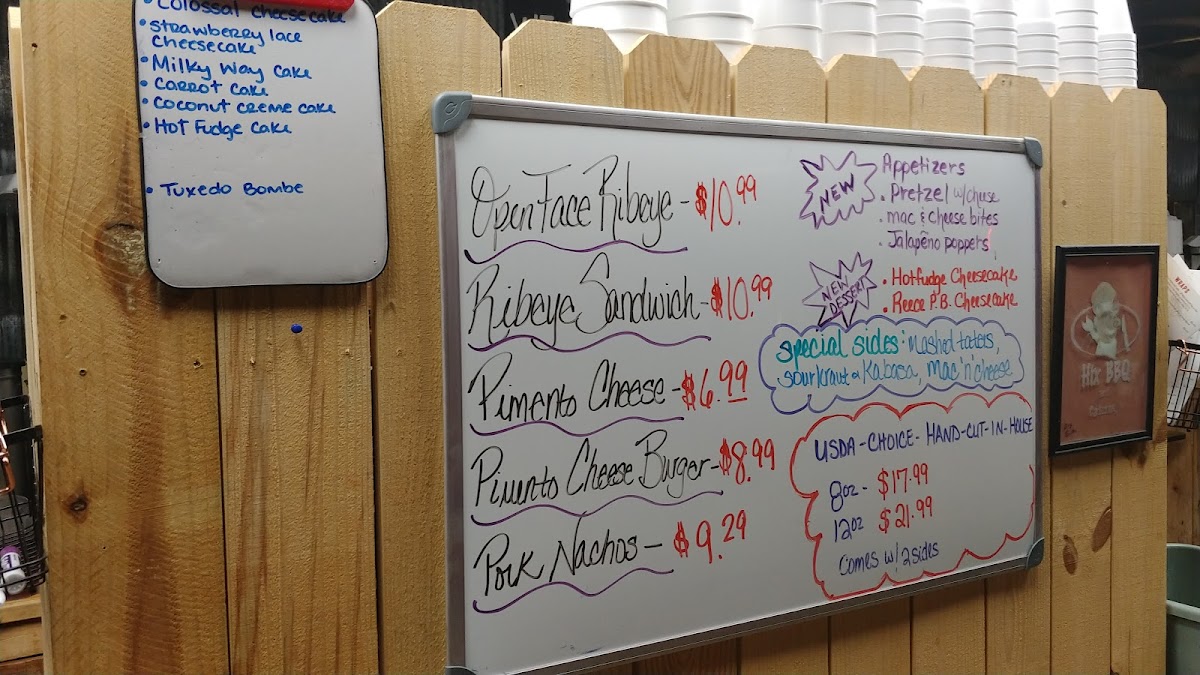 • Colossal cheesecake
• strawberry lace
cheesecake
• Milky Way cake
• carrot cake
• coconut creme cake
• Hot Fudge cake
• Tuxedo Bombe
Open Face Ribeye - $10.99
Ribeye Sandwich - $10.99
Pimento Cheese - $6.99
Pimento Cheese Burger - $8.99
Pork Nachos - $9.29
NEW
Appetizers
• Pretzel w/cheese
• mac & cheese bites
• Jalapeño poppers
NEW
DESSERT
• Hotfudge Cheesecake
• Reece P.B. Cheesecake
special sides: mashed taters,
sourkraut & Kabasa, mac 'n' cheese
USDA-CHOICE-HAND-CUT-IN-HOUSE
8oz - $17.99
12oz $21.99
Comes w/ 2 sides
Hix BBQ